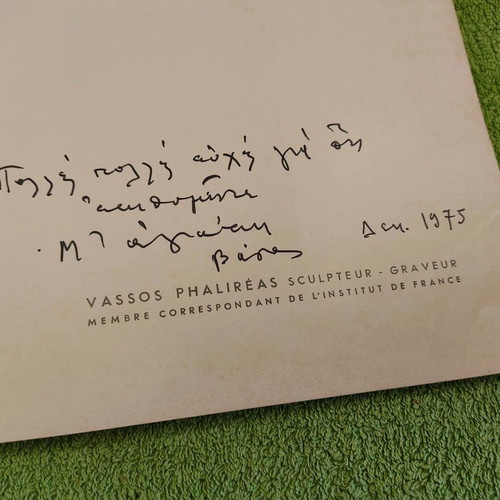 Πολλές πολλές εὐχές γιά ὅτι
ἐπιθυμῆτε
Μ' ἀγάπη
Βάσος
Δεκ. 1975
VASSOS PHALIRÉAS SCULPTEUR - GRAVEUR
MEMBRE CORRESPONDANT DE L'INSTITUT DE FRANCE